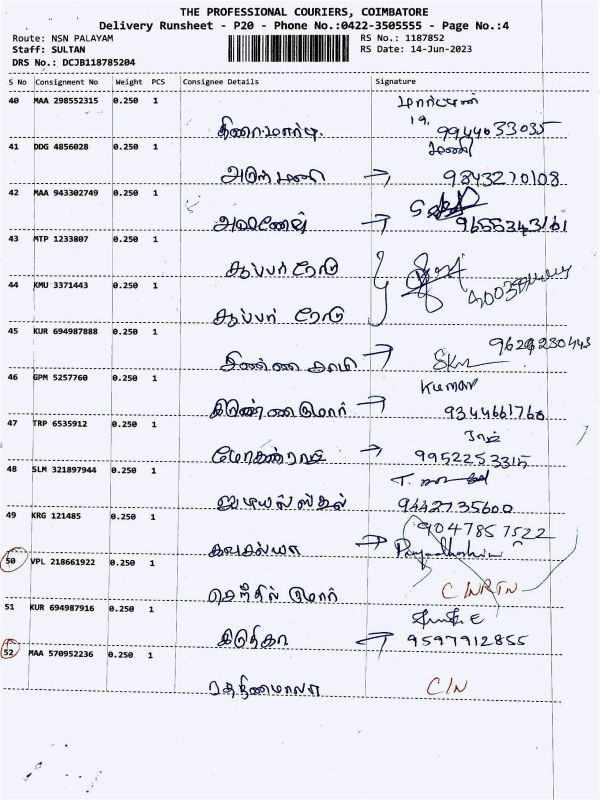 THE PROFESSIONAL COURIERS, COIMBATORE
Delivery Runsheet - P20 - Phone No.:0422-3505555 - Page No.:4
Route: NSN PALAYAM RS No.: 1187852
Staff: SULTAN RS Date: 14-Jun-2023
DRS No.: DCJB118785204
S No Consignment No Weight PCS Consignee Details Signature
40 MAA 298552315 0.250 1
9944033035
41 DDG 4856028 0.250 1 மணி
அருள் மணி → 9843270108
42 MAA 943302749 0.250 1
→ 9655343161
43 MTP 1233807 0.250 1
சூப்பர் ரோடு
44 KMU 3371443 0.250 1
சூப்பர் ரோடு
45 KUR 694987888 0.250 1 9629280443
சின்னசாமி → SKM
46 GPM 5257760 0.250 1 Kumar
→ 9344661760
47 TRP 6535912 0.250 1
மோகன்ராஜ் → 9952253315
48 SLM 321897944 0.250 1
9442735600
49 KRG 121485 0.250 1 9047857522
கவுசல்யா → Priyadharshini
50 VPL 218661922 0.250 1
செந்தில் குமார் C/NRTN
51 KUR 694987916 0.250 1
→ 9597912855
52 MAA 570952236 0.250 1
ரத்தினமாலா C/N